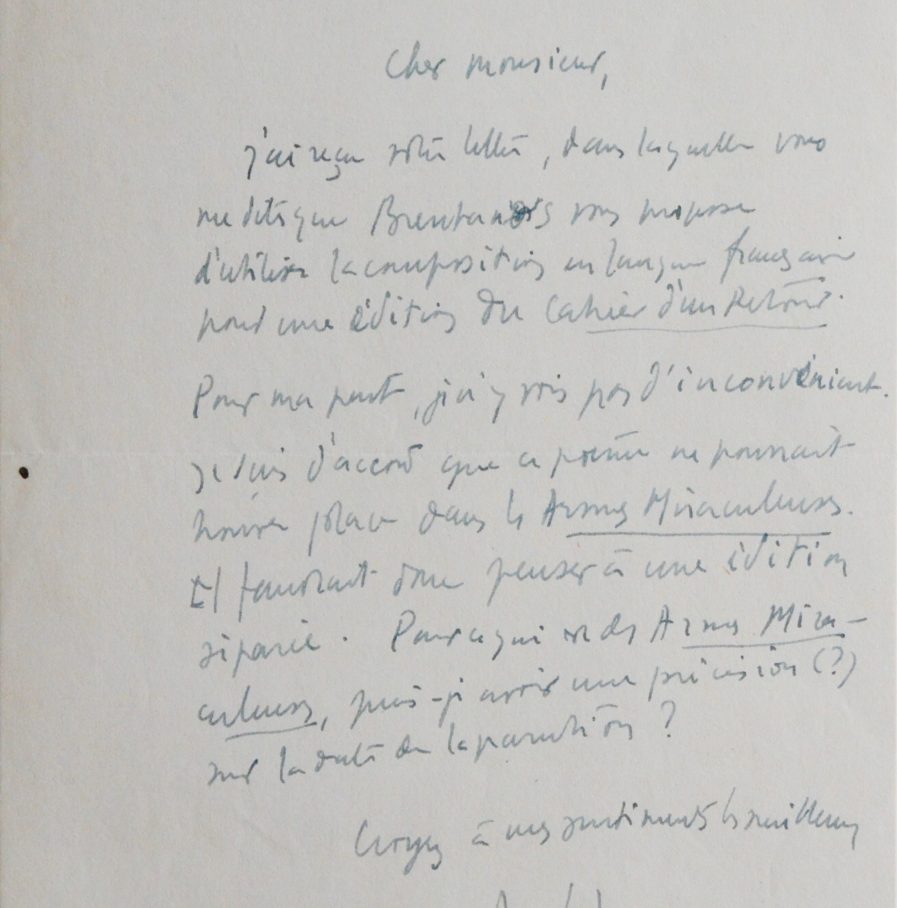 Cher monsieur,
j'ai reçu votre lettre, dans laquelle vous
me dites que Brentano's vous propose
d'utiliser la composition en langue française
pour une édition du Cahier d'un Retour.
Pour ma part, je n'y vois pas d'inconvénient.
Je suis d'accord que ce poème ne pourrait
trouver place dans les Armes Miraculeuses.
Il faudrait donc penser à une édition
séparée. Pour ce qui est des Armes Mira-
culeuses, puis-je avoir une précision (?)
sur la date de la parution ?
Croyez à mes sentiments les meilleurs